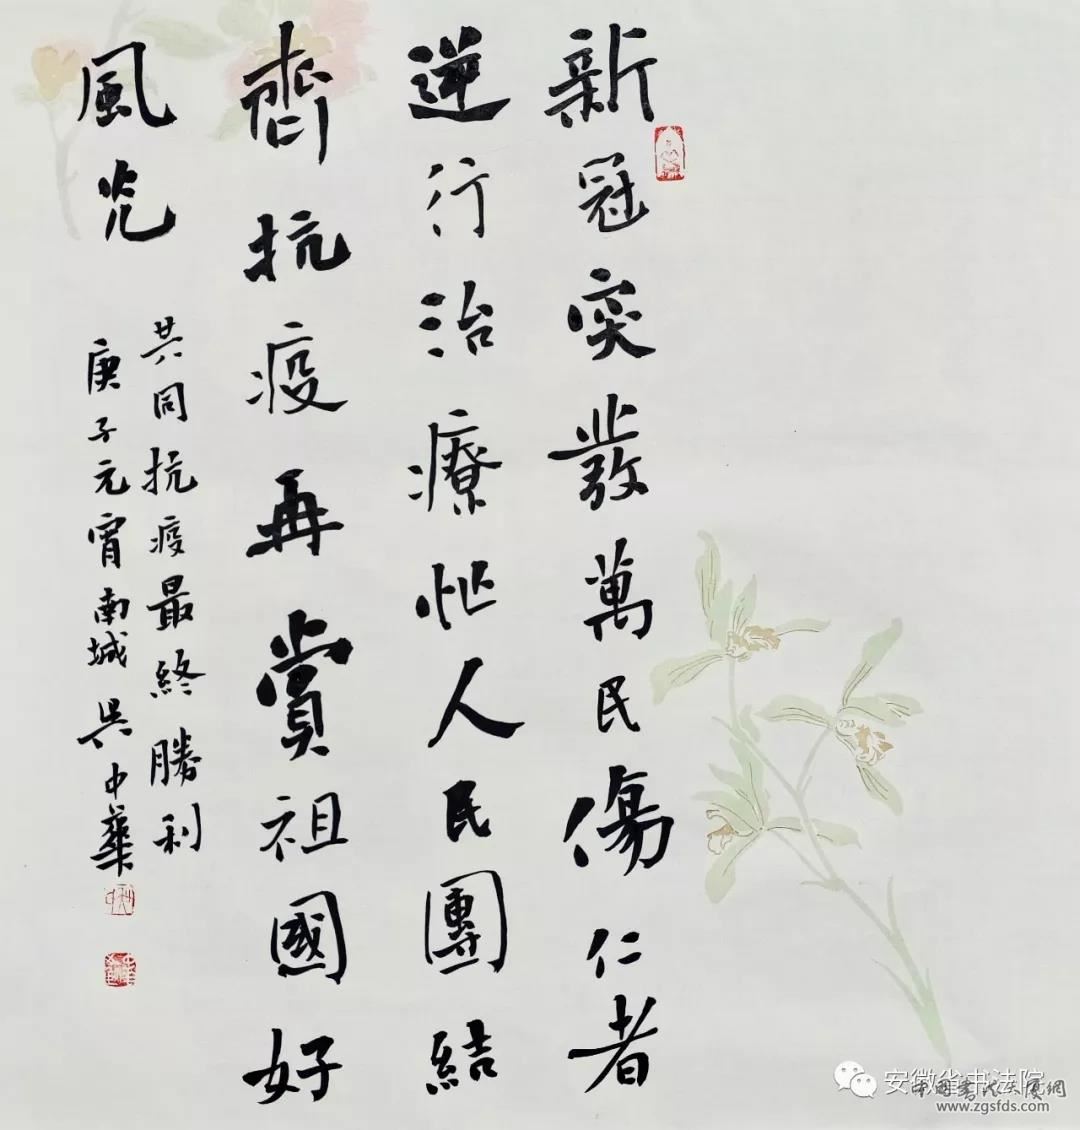 新冠突發萬民傷仁者
逆行治療忙人民團結
齊抗疫再賞祖國好
風光
共同抗疫最終勝利
庚子元宵南城吳中華
安徽省书法院
www.zgsfds.com